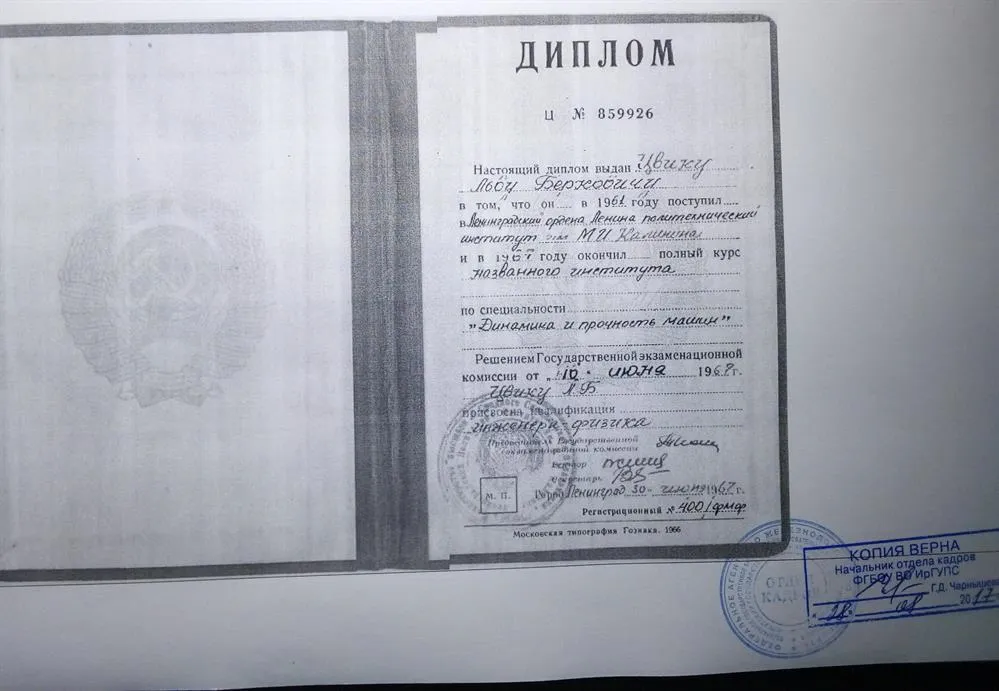 ДИПЛОМ
Ц № 859926
Настоящий диплом выдан Цвику
Льву Берковичу
в том, что он в 1961 году поступил
в Ленинградский ордена Ленина политехнический
институт им М И Калинина
и в 1967 году окончил полный курс
названного института
по специальности
"Динамика и прочность машин"
Решением Государственной экзаменационной
комиссии от июня 1967 г.
Цвику Л Б
присвоена квалификация
инженера физика
Председатель Государственной
экзаменационной комиссии
Ректор
Секретарь
М. П.
Город Ленинград 30 июня 1967 г.
Регистрационный № 400/фмф
Московская типография Гознака. 1966
ОТДЕЛ
КАДРОВ
КОПИЯ ВЕРНА
Начальник отдела кадров
ФГБОУ ВО ИрГУПС
Г.Д. Чарнышова
"28" 08 2017